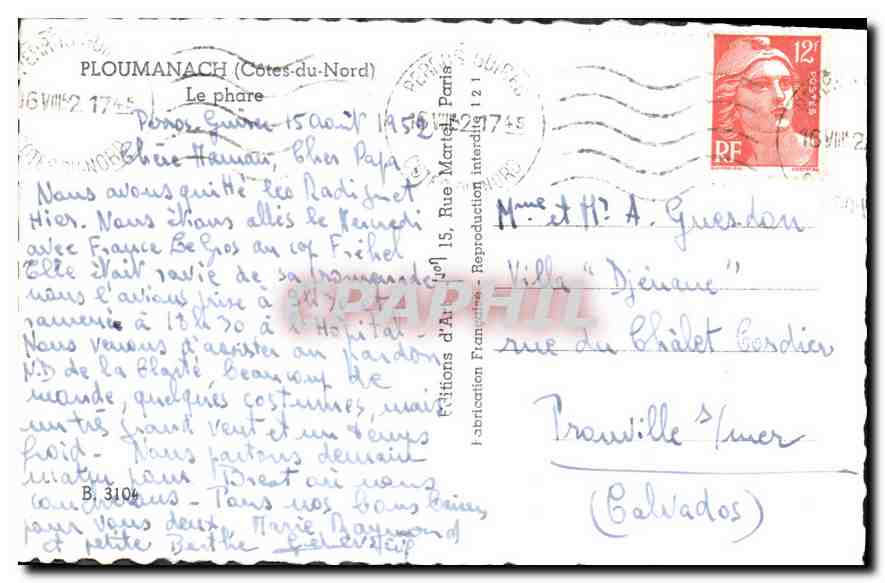 PLOUMANACH (Côtes-du-Nord)
Le phare
Perros Guirec 15 août 1952
Chère Maman, Cher Papa
Nous avons quitté les Radiguet
Hier. Nous étions allés le Mercredi
avec France Le Gros au cap Fréhel
Elle était ravie de sa promenade
nous l'avions prise à
ramenée à 18h30 à l'Hôpital
Nous venons d'assister au Pardon
N.D de la Clarté, beaucoup de
monde, quelques costumes, mais
un très grand vent et un temps
froid - Nous partons demain
matin pour Brest où nous
coucherons - Tous nos bons baisers
pour vous deux. Marie Raymond
et petite Berthe Geneviève
B. 3104
Editions d'Art "Jon" 15, Rue Martel, Paris
Fabrication Française - Reproduction interdite 121
PERROS GUIREC
16 VIII 52 1745
CÔTES DU NORD
12F
POSTES
RF
Mme et Mr A. Guesdon
Villa "Djénane"
rue du Châlet Cordier
Tronville s/mer
(Calvados)
CPAPHIL